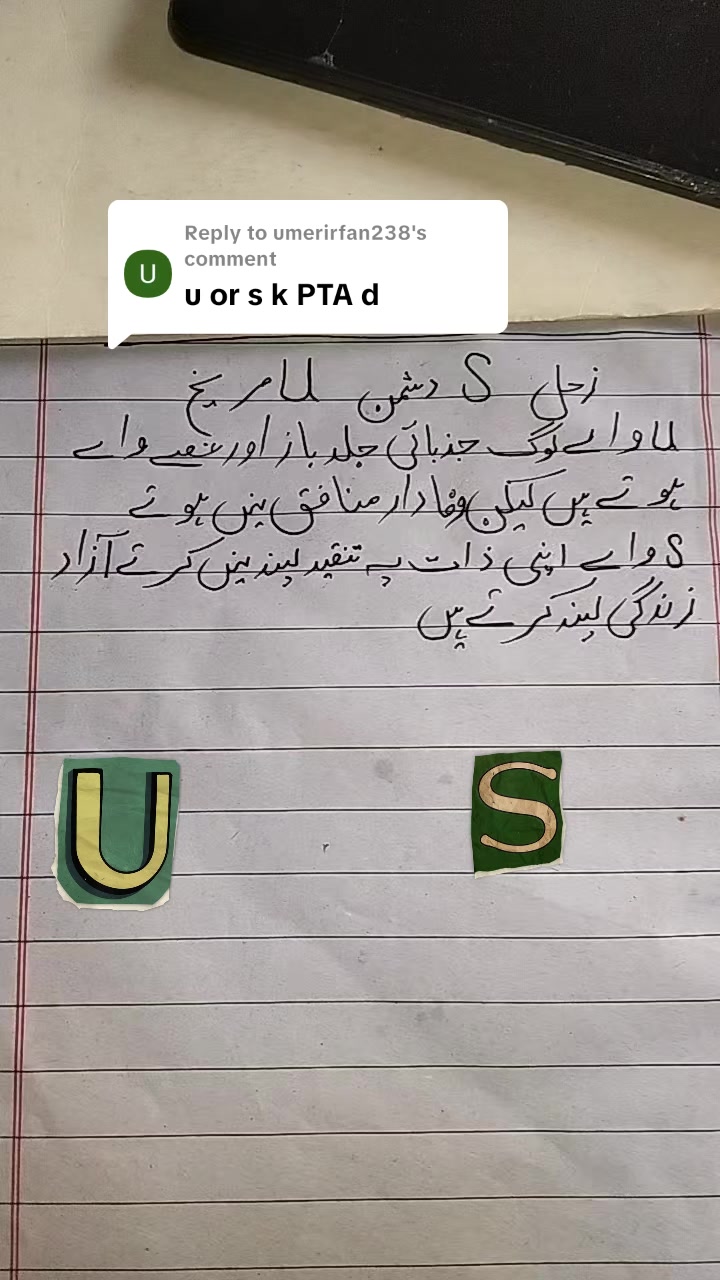 Reply to umerirfan238's
comment
U
u or s k PTA d
زحل S دشمن U مریخ
U والے لوگ جذباتی جلد باز اور غصے والے
ہوتے ہیں لیکن وفادار منافق نہیں ہوتے
S والے اپنی ذات پہ تنقید پسند نہیں کرتے آزاد
زندگی پسند کرتے ہیں
U S